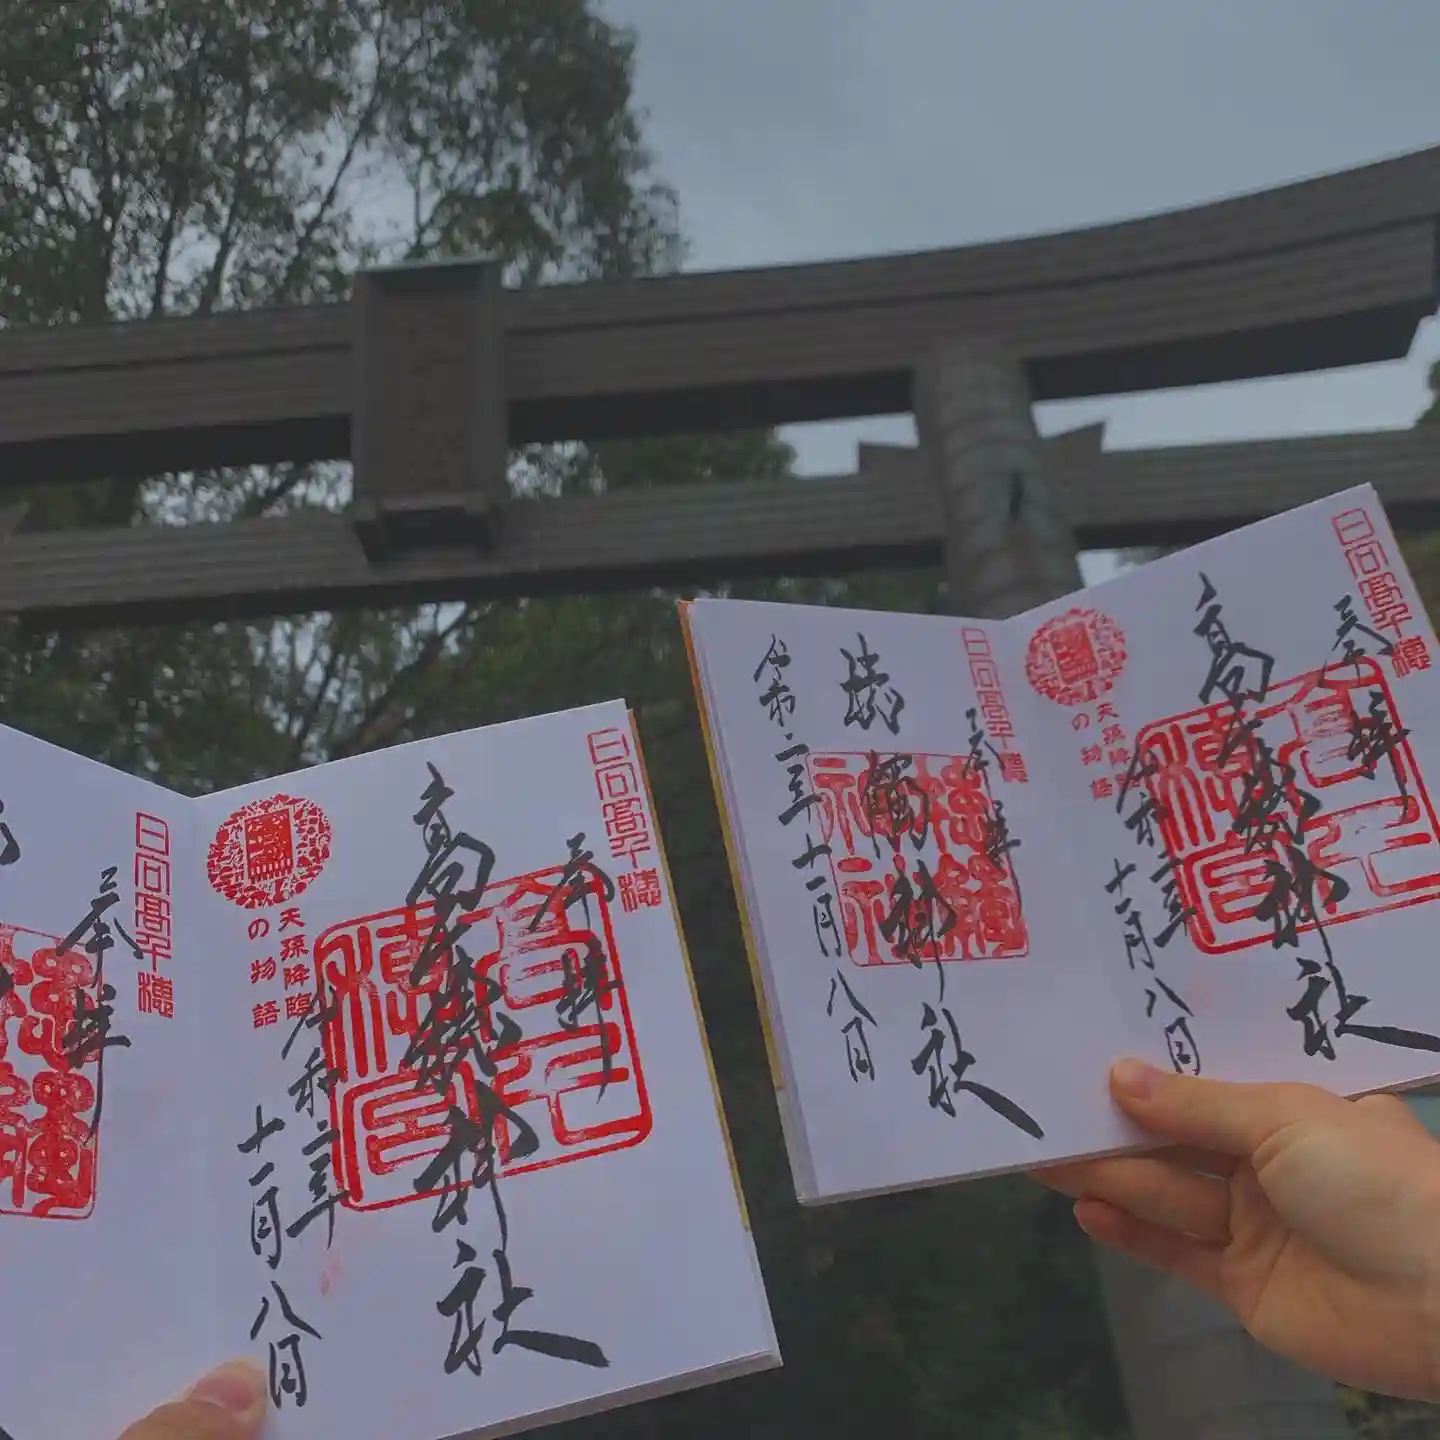 日向高千穂
奉拝
高千穂神社
天孫降臨
の物語
令和二年
十一月八日
日向高千穂
奉拝
日向高千穂
奉拝
高千穂神社
天孫降臨
の物語
令和二年
十一月八日
日向高千穂
奉拝
槵觸神社
令和二年十一月八日